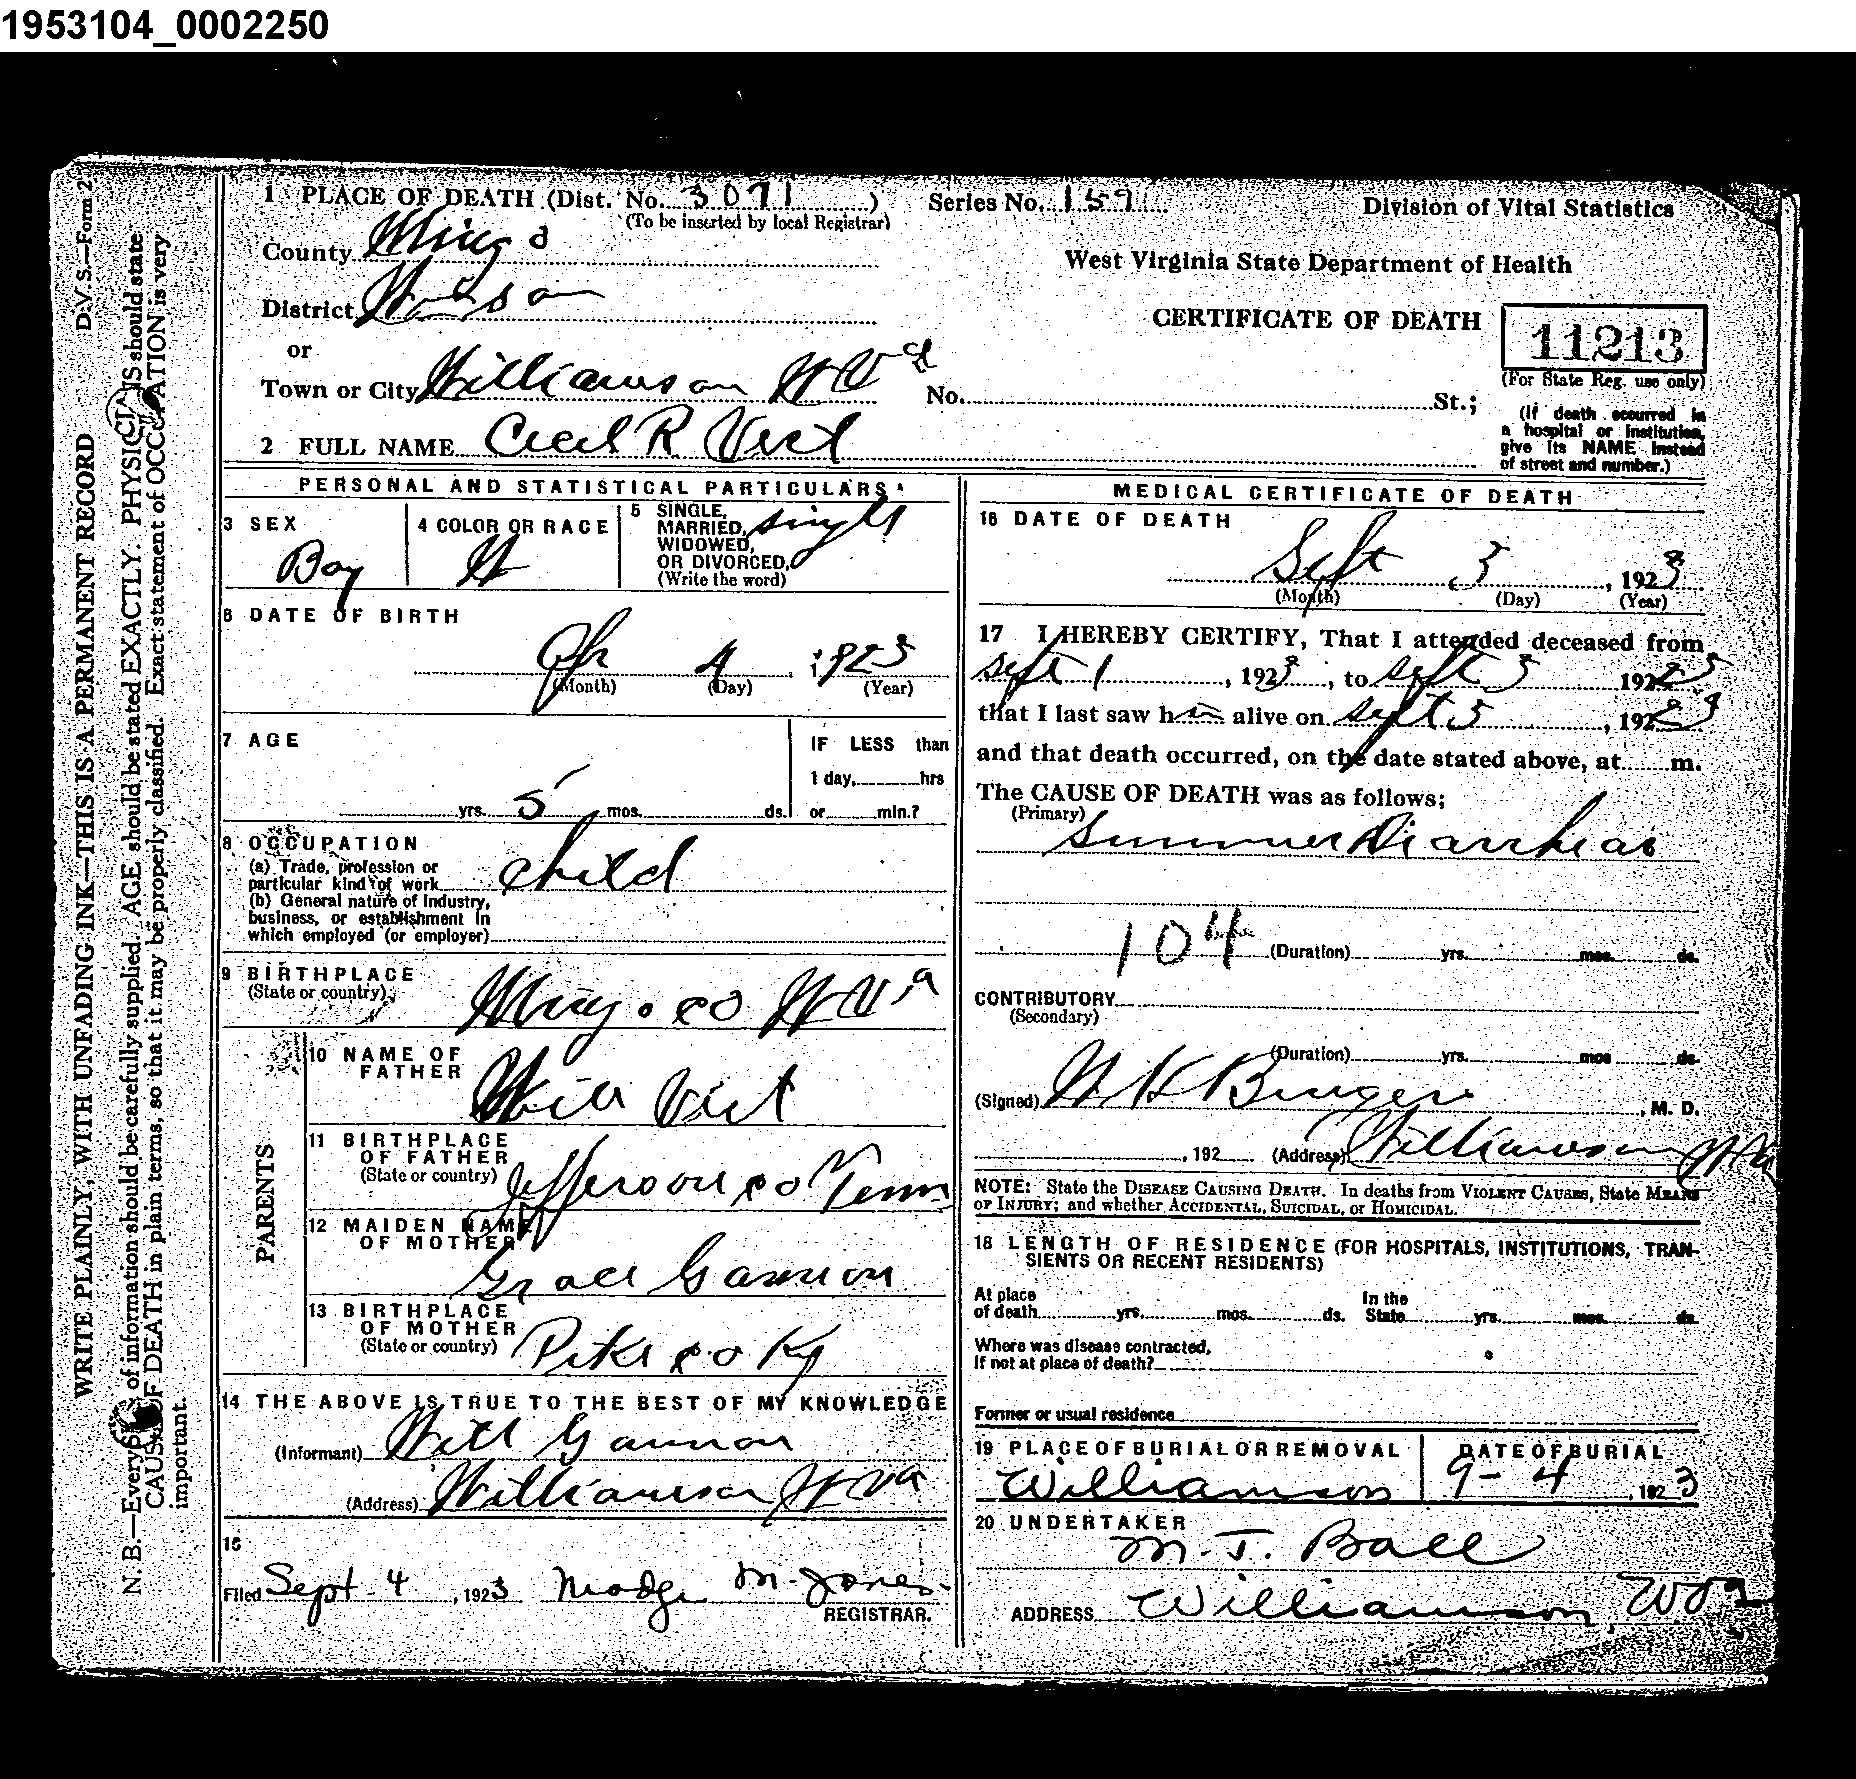 1953104_0002250
D.V.S.—Form 2
WRITE PLAINLY, WITH UNFADING INK—THIS IS A PERMANENT RECORD
N. B.—Every of information should be carefully supplied. AGE should be stated EXACTLY. PHYSICIA IS should state
CAUS OF DEATH in plain terms, so that it may be properly classified. Exact statement of OCCUPATION is very
important.
1 PLACE OF DEATH (Dist. No. 3071 ) Series No. 159 Division of Vital Statistics
(To be inserted by local Registrar)
County Mingo
West Virginia State Department of Health
District
CERTIFICATE OF DEATH 11213
or
(For State Reg. use only)
Town or City Williamson W Va No. St.;
(If death occurred in
a hospital or institution,
give its NAME instead
of street and number.)
2 FULL NAME Cecil R Vest
PERSONAL AND STATISTICAL PARTICULARS
3 SEX
Boy
4 COLOR OR RACE
W
5 SINGLE,
MARRIED,
WIDOWED,
OR DIVORCED,
(Write the word)
single
6 DATE OF BIRTH
Apr 4 1923
(Month) (Day) (Year)
7 AGE
yrs. 5 mos. ds.
IF LESS than
1 day, hrs
or min.?
8 OCCUPATION
(a) Trade, profession or
particular kind of work child
(b) General nature of Industry,
business, or establishment in
which employed (or employer)
9 BIRTHPLACE
(State or country) Mingo co W Va
PARENTS
10 NAME OF
FATHER
Will Vest
11 BIRTHPLACE
OF FATHER
(State or country) Jefferson co Tenn
12 MAIDEN NAME
OF MOTHER
Grace Gannon
13 BIRTHPLACE
OF MOTHER
(State or country) Pike co Ky
14 THE ABOVE IS TRUE TO THE BEST OF MY KNOWLEDGE
(Informant) Will Gannon
(Address) Williamson W Va
15
Filed Sept - 4, 1923 Madge M. Jones
REGISTRAR.
MEDICAL CERTIFICATE OF DEATH
16 DATE OF DEATH
Sept 3, 1923
(Month) (Day) (Year)
17 I HEREBY CERTIFY, That I attended deceased from
Sept 1, 1923, to Sept 3 1923
that I last saw him alive on Sept 3, 1923
and that death occurred, on the date stated above, at m.
The CAUSE OF DEATH was as follows;
(Primary)
Summer Diarrheas
104 (Duration) yrs. mos. ds.
CONTRIBUTORY
(Secondary)
(Duration) yrs. mos ds.
(Signed) , M. D.
, 192 (Address) Williamson W Va
NOTE: State the DISEASE CAUSING DEATH. In deaths from VIOLENT CAUSES, State MEANS
OF INJURY; and whether ACCIDENTAL, SUICIDAL, or HOMICIDAL.
18 LENGTH OF RESIDENCE (FOR HOSPITALS, INSTITUTIONS, TRAN-
SIENTS OR RECENT RESIDENTS)
At place
of death yrs. mos. ds.
In the
State yrs. mos. ds.
Where was disease contracted,
If not at place of death?
Former or usual residence
19 PLACE OF BURIAL OR REMOVAL
Williamson
DATE OF BURIAL
9 - 4, 1923
20 UNDERTAKER
M. J. Ball
ADDRESS Williamson, W. Va